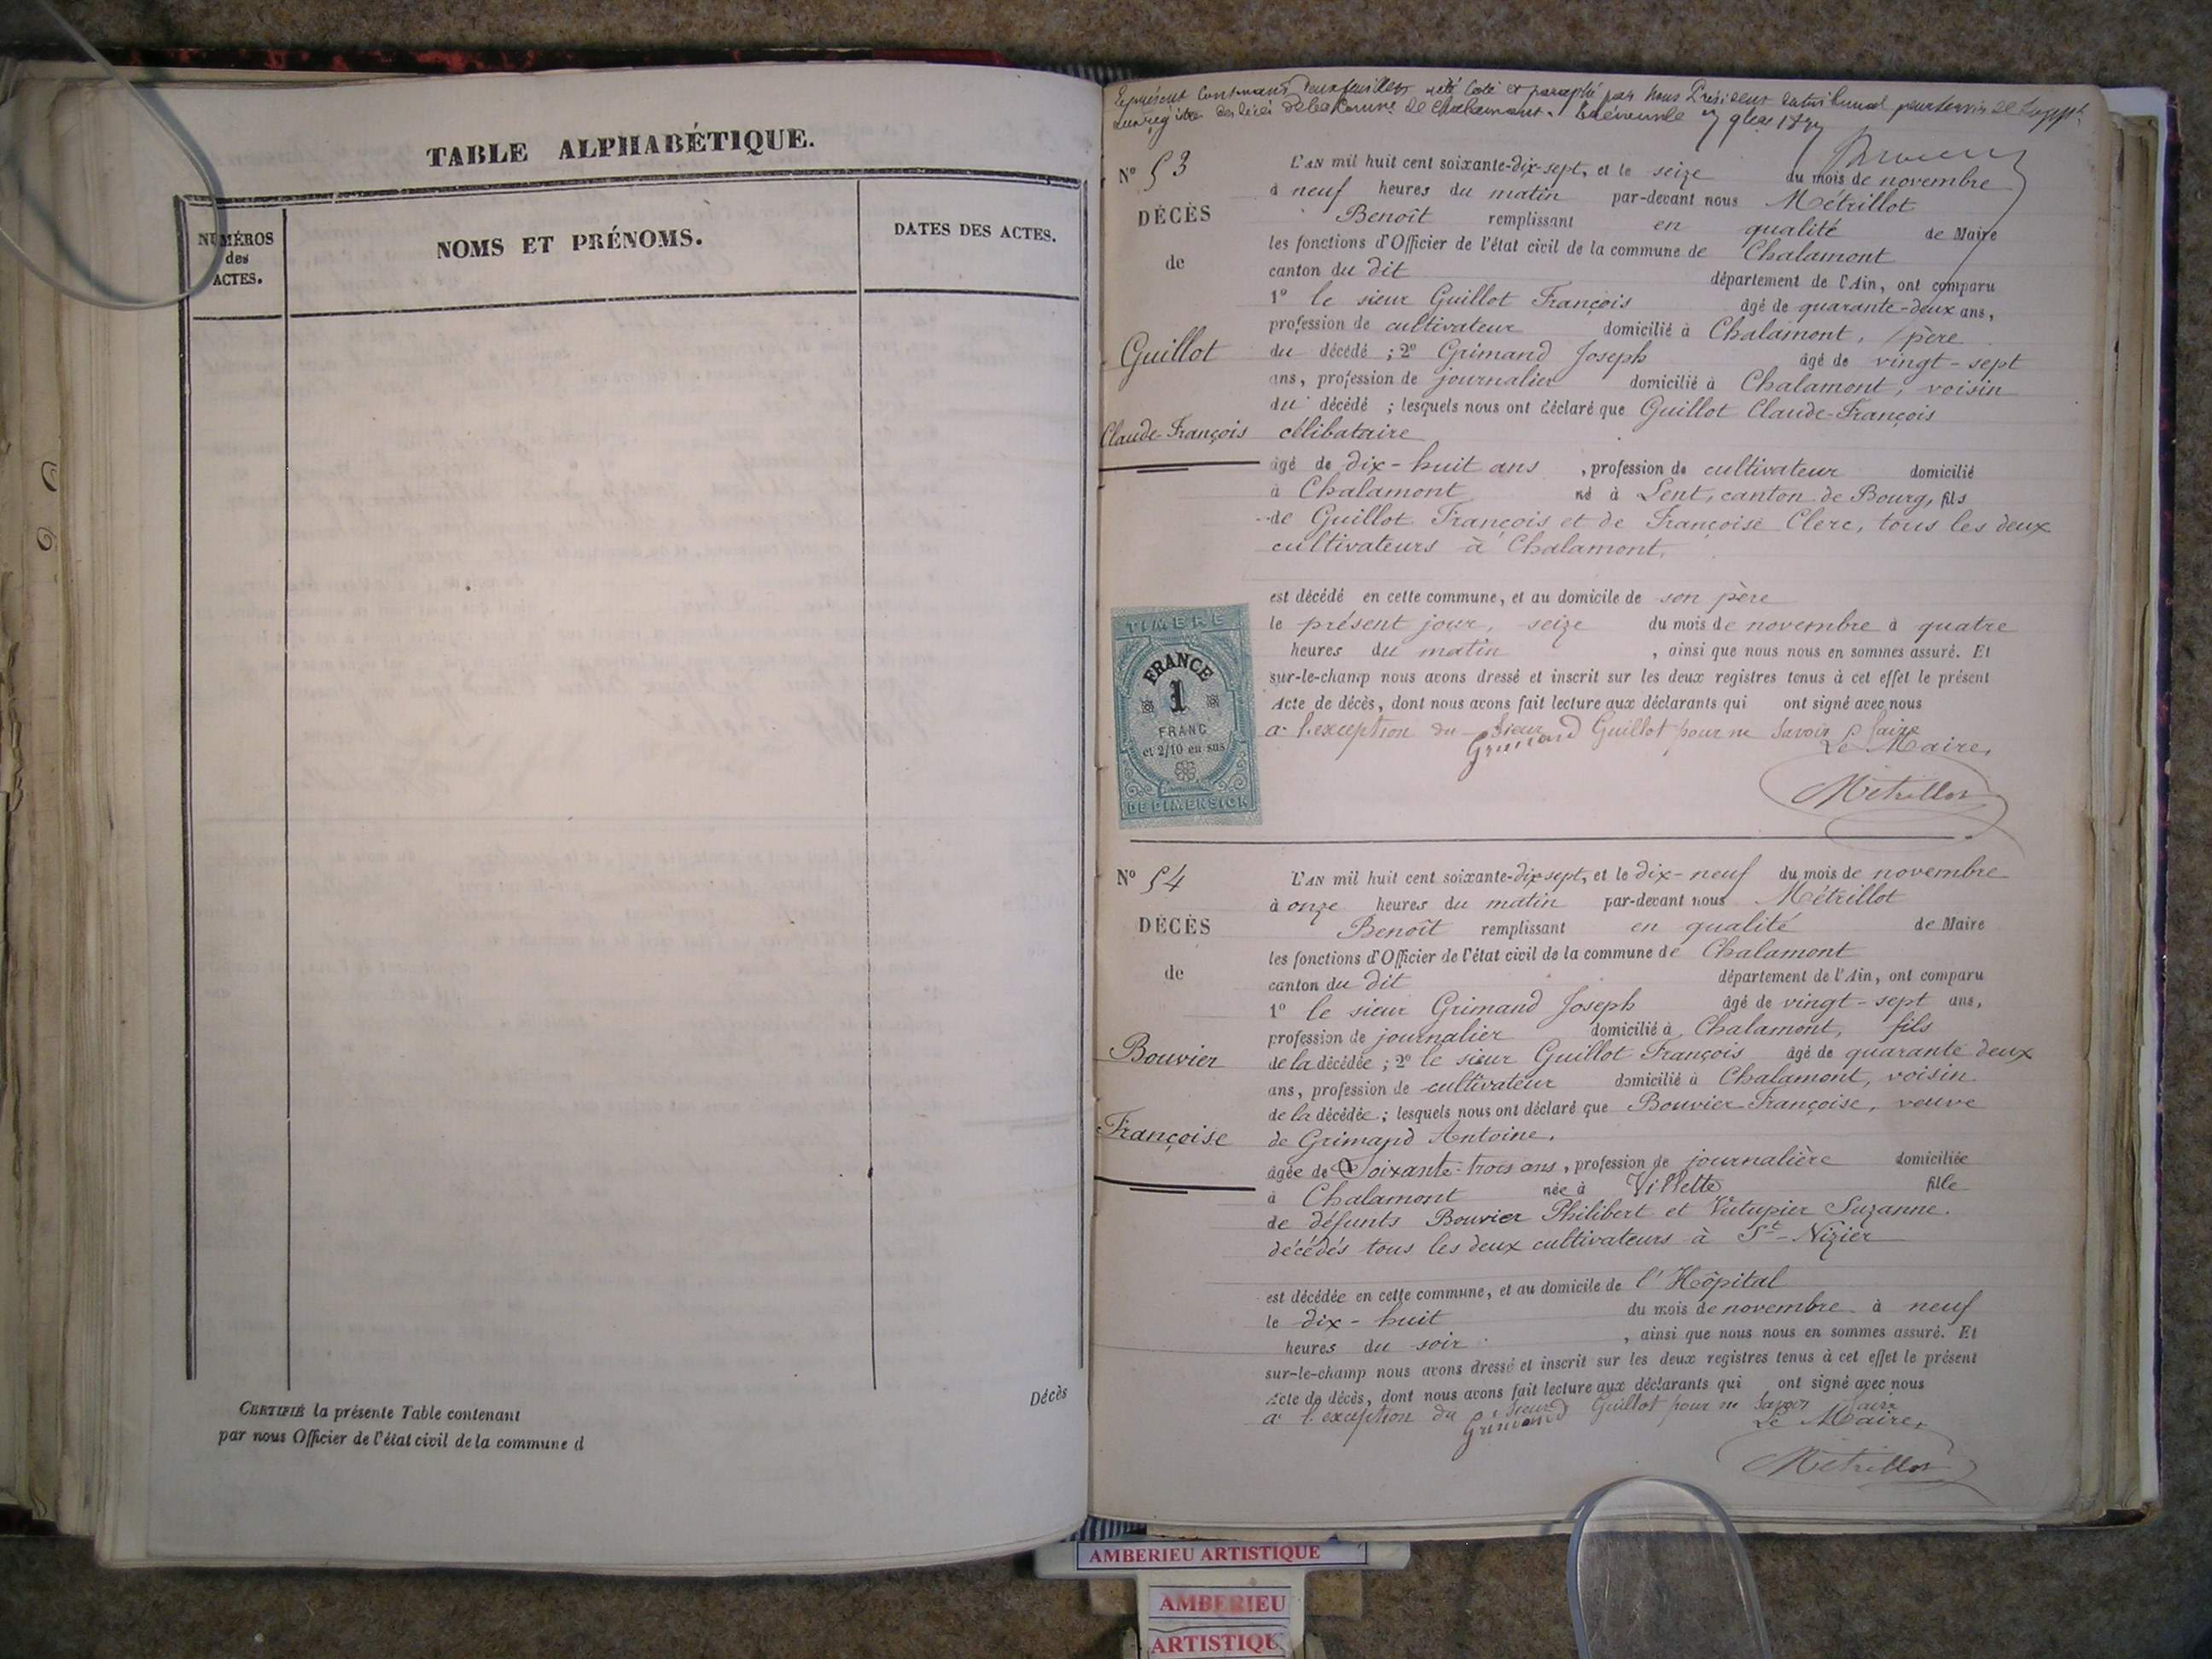 TABLE ALPHABÉTIQUE.
NUMÉROS
des
ACTES.
NOMS ET PRÉNOMS.
DATES DES ACTES.
CERTIFIÉ la présente Table contenant
par nous Officier de l'état civil de la commune d
Décès
Le présent contenant deux feuillets a été coté et paraphé par nous Président du tribunal pour servir de suppt
au registre des décès de la Comne de Chalamont. Trévoux le 7 9bre 1877
Nº 53
DÉCÈS
de
Guillot
Claude-François
L'AN mil huit cent soixante-dix-sept, et le seize du mois de novembre
à neuf heures du matin par-devant nous Métrillot
Benoît remplissant en qualité de Maire
les fonctions d'Officier de l'état civil de la commune de Chalamont
canton du dit département de l'Ain, ont comparu
1º le sieur Guillot François âgé de quarante-deux ans,
profession de cultivateur domicilié à Chalamont, père
du décédé ; 2º Grimand Joseph âgé de vingt-sept
ans, profession de journalier domicilié à Chalamont, voisin
du décédé ; lesquels nous ont déclaré que Guillot Claude-François
célibataire
âgé de dix-huit ans , profession de cultivateur domicilié
à Chalamont né à Lent, canton de Bourg, fils
de Guillot François et de Françoise Clerc, tous les deux
cultivateurs à Chalamont.
est décédé en cette commune, et au domicile de son père
le présent jour, seize du mois de novembre à quatre
heures du matin , ainsi que nous nous en sommes assuré. Et
sur-le-champ nous avons dressé et inscrit sur les deux registres tenus à cet effet le présent
Acte de décès, dont nous avons fait lecture aux déclarants qui ont signé avec nous
a l'exception du Sieur Guillot pour ne Savoir faire
Grimand
Le Maire,
Métrillot
TIMBRE
FRANCE
1
FRANC
et 2/10 en sus
DE DIMENSION
Nº 54
DÉCÈS
de
Bouvier
Françoise
L'AN mil huit cent soixante-dix-sept, et le dix-neuf du mois de novembre
à onze heures du matin par-devant nous Métrillot
Benoît remplissant en qualité de Maire
les fonctions d'Officier de l'état civil de la commune de Chalamont
canton du dit département de l'Ain, ont comparu
1º le sieur Grimand Joseph âgé de vingt-sept ans,
profession de journalier domicilié à Chalamont, fils
de la décédée ; 2º le sieur Guillot François âgé de quarante deux
ans, profession de cultivateur domicilié à Chalamont, voisin
de la décédée ; lesquels nous ont déclaré que Bouvier Françoise, veuve
de Grimand Antoine.
âgée de Soixante-trois ans, profession de journalière domiciliée
à Chalamont née à Villette fille
de défunts Bouvier Philibert et Suzanne.
décédés tous les deux cultivateurs à St-Nizier
est décédée en cette commune, et au domicile de l'Hôpital
le dix-huit du mois de novembre à neuf
heures du soir , ainsi que nous nous en sommes assuré. Et
sur-le-champ nous avons dressé et inscrit sur les deux registres tenus à cet effet le présent
Acte de décès, dont nous avons fait lecture aux déclarants qui ont signé avec nous
a l'exception du Sieur Guillot pour ne Savoir faire
Grimand
Le Maire,
Métrillot
AMBERIEU ARTISTIQUE
AMBERIEU
ARTISTIQU